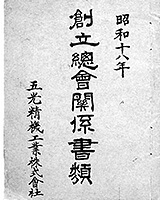 昭和十八年
創立總會關係書類
五光精機工業株式会社